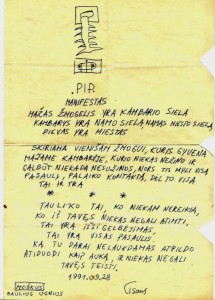 .PIP.
MANIFESTAS
MAŽAS ŽMOGELIS YRA KAMBARIO SIELA
KAMBARYS YRA NAMO SIELA NAMAS MIESTO SIELA
DIEVAS YRA MIESTAS
SKIRIAMA VIENIŠAM ŽMOGUI, KURIS GYVENA
MAŽAME KAMBARYJE, KURIO NIEKAS NEŽINO IR
GALBŪT NIEKADA NESUŽINOS, NORS TIK VISA
PASAULI, PALAIKO KONTAKTĄ, DĖL TO VISA
TAI IR YRA
* * *
TAU LIKO TAI, KO NIEKAM NEREIKIA,
KO IŠ TAVĘS NIEKAS NEGALI ATIMTI,
TAI YRA IŠSIGELBĖJIMAS.
TAI YRA VISAS PASAULIS.
KĄ TU DARAI NELAUKDAMAS ATPILDO
ATIDUODI KAIP AUKĄ, IR NIEKAS NEGALI
TAVĘS TEISTI.
1991.09.28
MORKŪNAS
SAULIUS UGNIUS